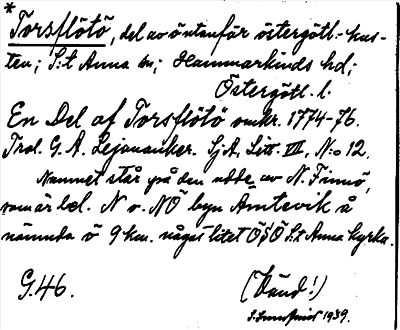 *
Torsflötö, del av ö utanför östergötl.-kus-
ten; S:t Anna sn; Hammarkinds hd;
Östergötl. l.
En Del af Torsflötö omkr. 1774-76.
Trol. G. A. Lejonanker. Sj A, Litt. III, N:o 12.
Namnet står på den udde av N. Finnö,
som är bel. N o. NO byn Ämtevik å
nämnda ö 9 km. något litet ÖSÖ S:t Anna kyrka.
G.46.
(Känd!)
1939.